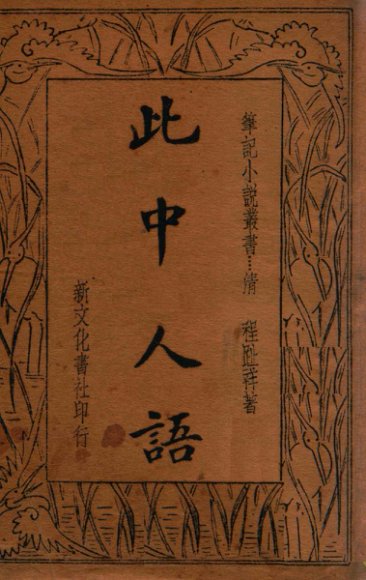 筆記小說叢書…清 程趾祥著
此中人語
新文化書社印行